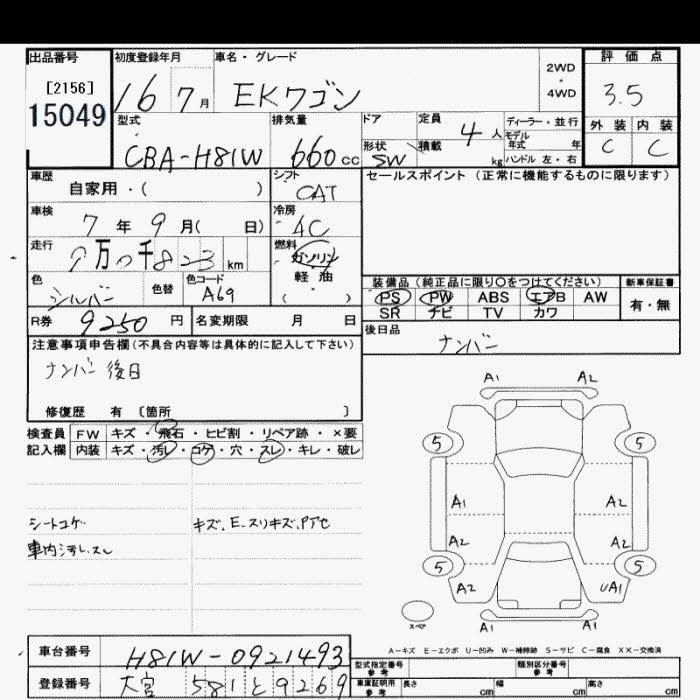 出品番号
[2156]
15049
初度登録年月
16 7月
車名・グレード
EKワゴン
2WD
・
4WD
評価点
3.5
外装 内装
C C
型式
CBA-H81W
排気量
660cc
ドア
形状
SW
定員
4人
積載
kg
ディーラー・並行
モデル
年式 年
ハンドル 左・右
車歴
自家用・( )
シフト
CAT
車検
7年9月( 日)
冷房
AC
走行
万 千 8 km
燃料
ガソリン
軽・油
( )
色
シルバー
色替
色コード
A69
R券
9250円
名変期限 月 日
セールスポイント (正常に機能するものに限ります)
装備品 (純正品に限り○をつけてください)
PS PW ABS エアB AW
SR ナビ TV カワ
新車保証書
有・無
後日品
ナンバー
注意事項申告欄(不具合内容等は具体的に記入して下さい)
ナンバー 後日
修復歴 有 〔箇所 〕
検査員
記入欄
FW キズ・飛石・ヒビ割・リペア跡・×要
内装 キズ・汚レ・コゲ・穴・スレ・キレ・破レ
シートコゲ
車内汚レ、スレ
キズ、E、スリキズ、Pアセ
A1 A2
5 5
A1 A2
A2 A2
5 5
A2 UA1
スペア
A1 A1
A-キズ E-エクボ U-凹み W-補修跡 S-サビ C-腐食 XX-交換済
車台番号
H81W-0921493
登録番号
大宮 581 と 9269
型式指定番号
参考
類別区分番号
参考
車庫証明用
参考
長さ cm 幅 cm 高さ cm